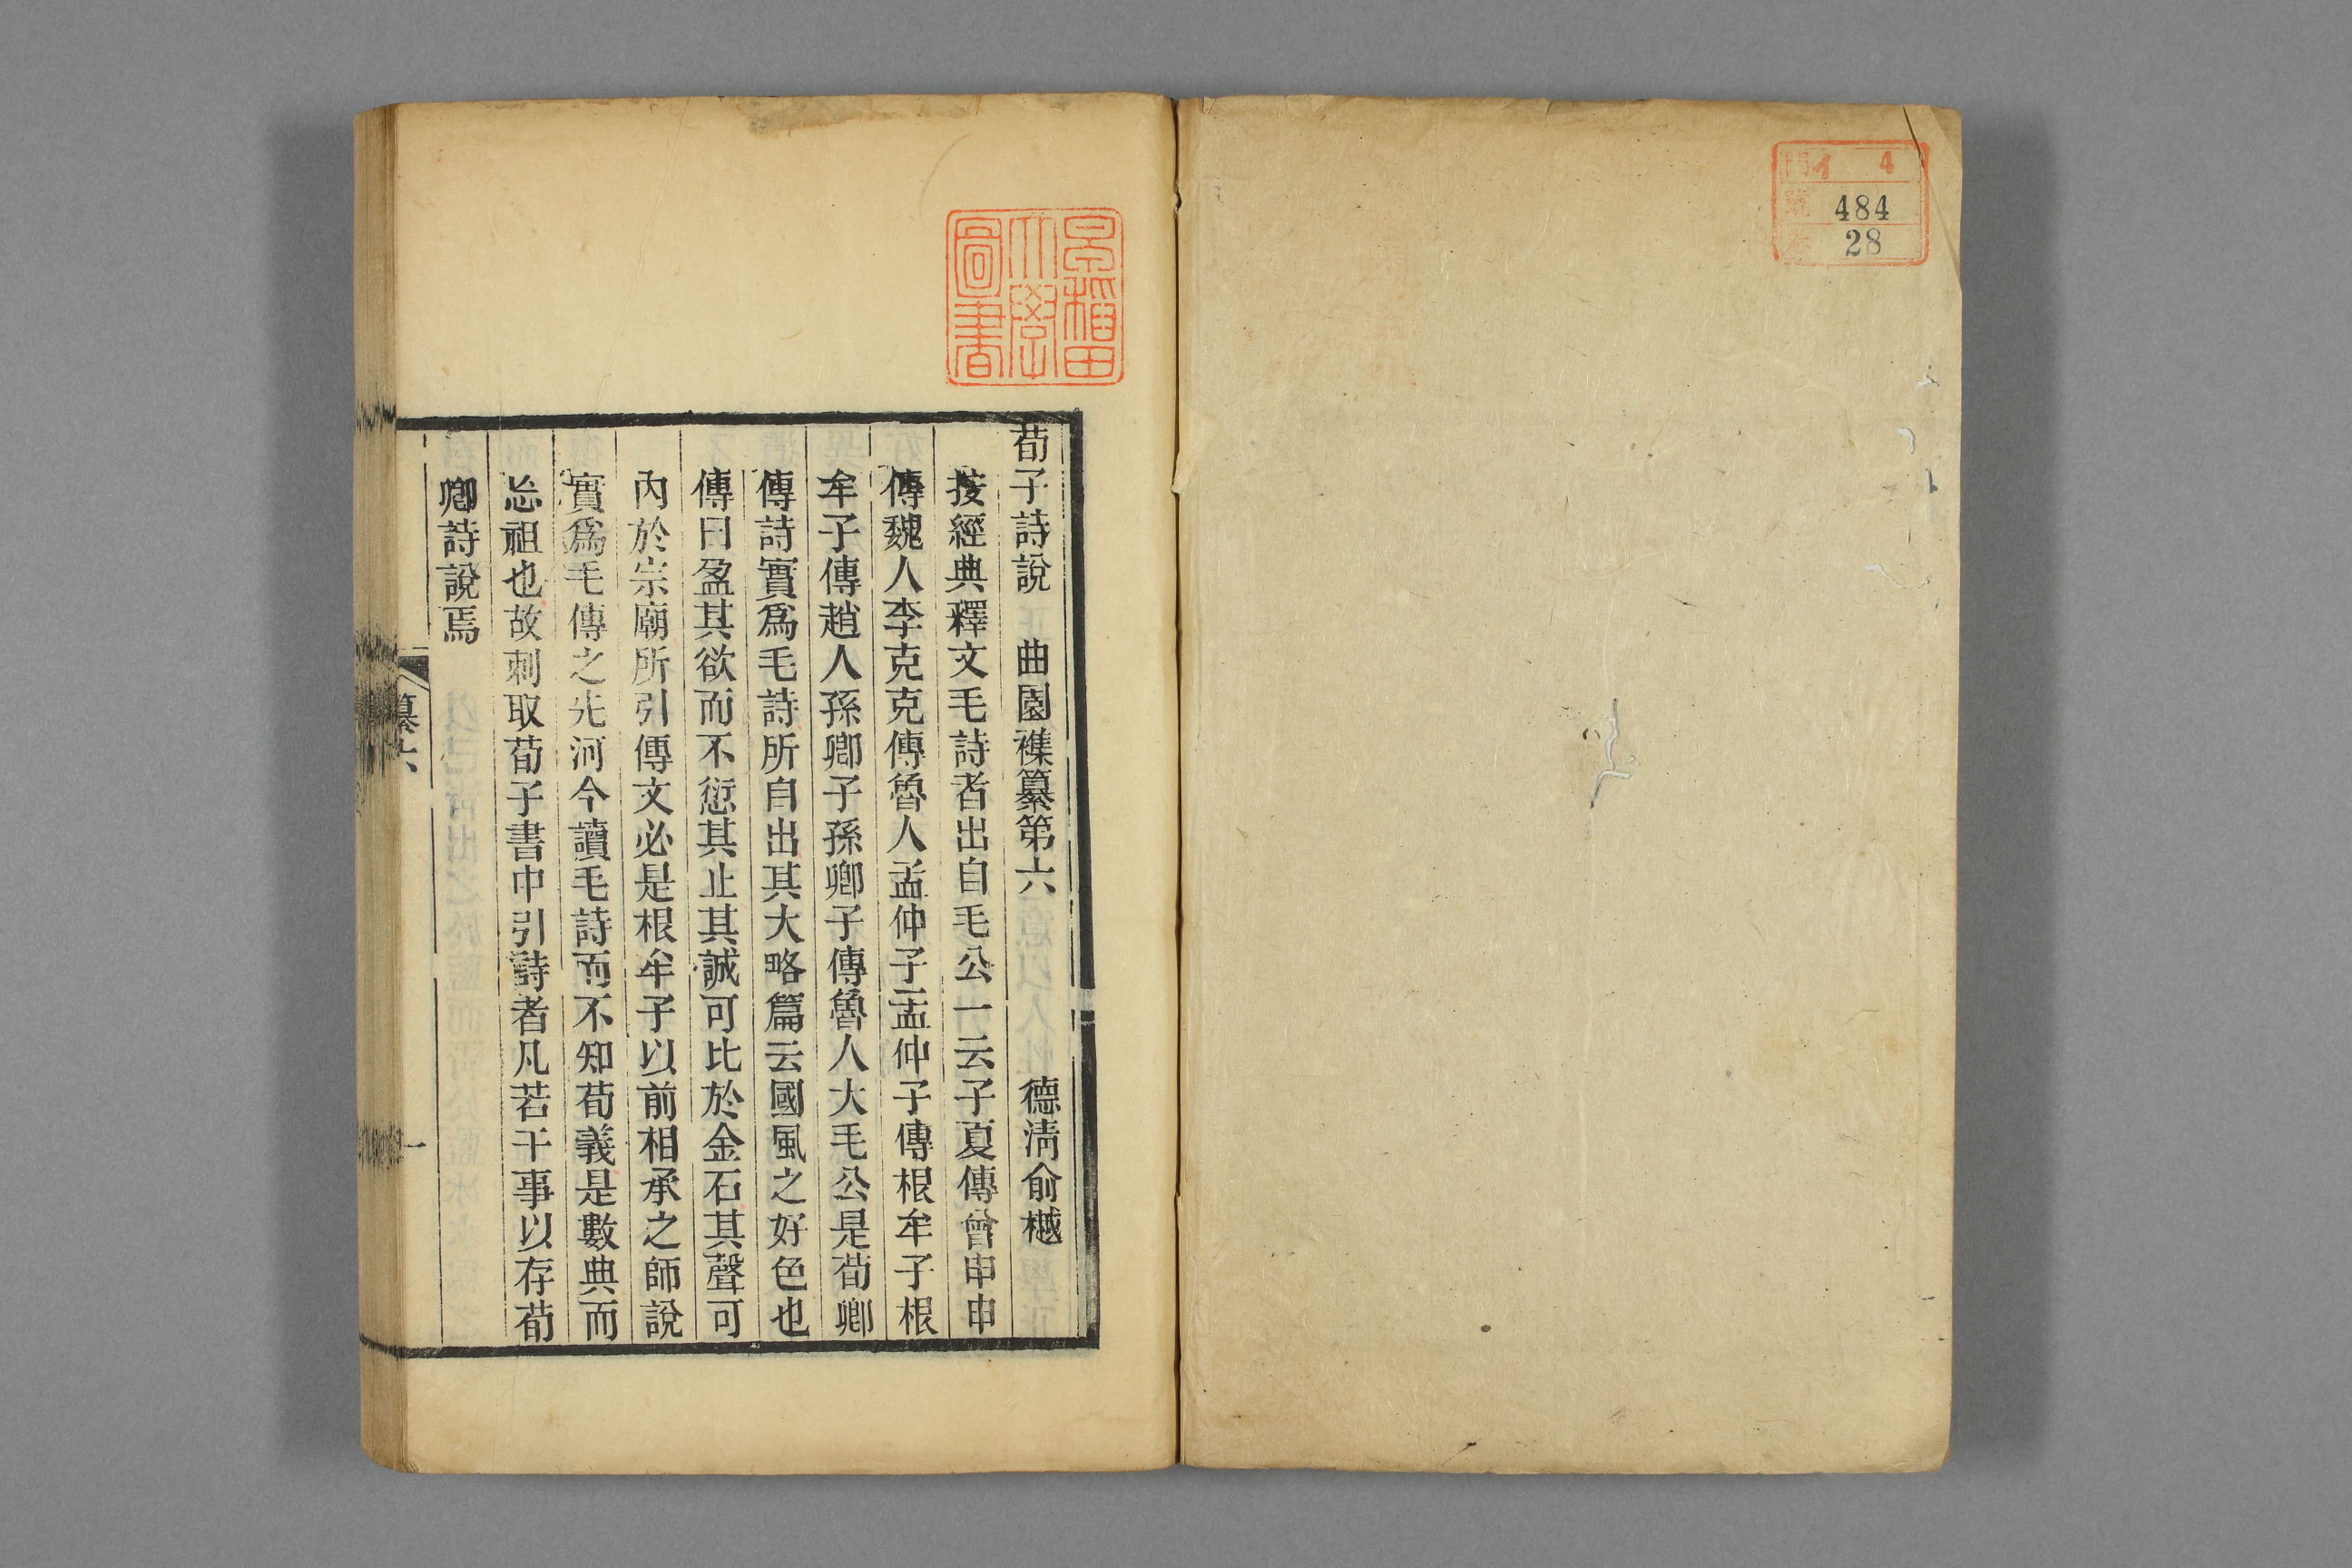 門イ 4
號 484
卷 28
早稲田
大學
圖書
荀子詩說 曲園襍纂第六 德淸俞樾
按經典釋文毛詩者出自毛公一云子夏傳曾申申
傳魏人李克克傳魯人孟仲子孟仲子傳根牟子根
牟子傳趙人孫卿子孫卿子傳魯人大毛公是荀卿
傳詩實爲毛詩所自出其大略篇云國風之好色也
傳曰盈其欲而不愆其止其誠可比於金石其聲可
內於宗廟所引傳文必是根牟子以前相承之師說
實爲毛傳之先河今讀毛詩而不知荀義是數典而
忘祖也故刺取荀子書中引詩者凡若干事以存荀
卿詩說焉
纂六
一